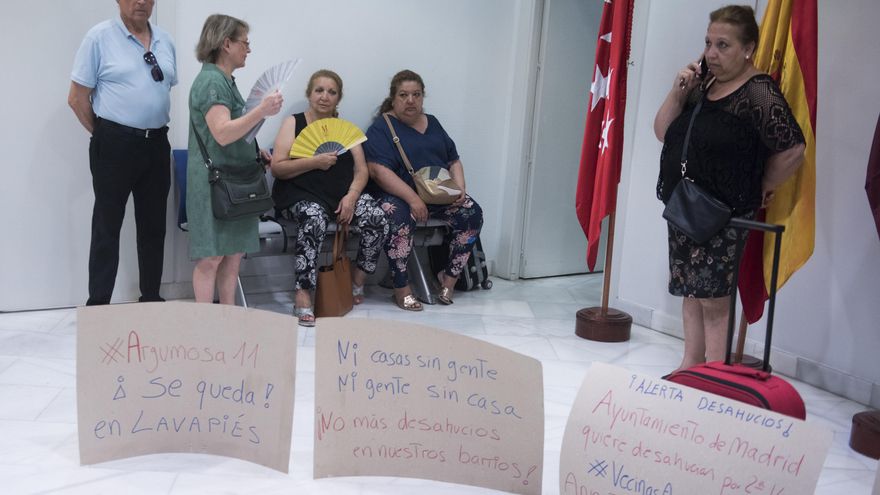 #Argumosa 11
¡Se queda!
en LAVAPIÉS
Ni casas sin gente
Ni gente sin casa
¡No más desahucios
en nuestros barrios!
¡ALERTA DESAHUCIOS!
Ayuntamiento de Madrid
quiere desahuciar por 2ª